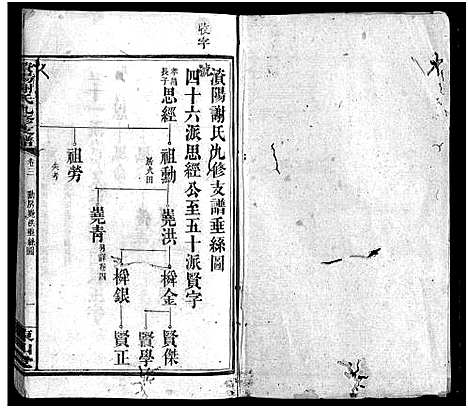 收字
號
濱陽謝氏九修支譜垂絲圖
四十六派思經公至五十派賢字
孝昌長子
思經
祖動
居大田
堯洪
舜金
賢傑
賢學
舜銀
賢正
堯青
另詳卷四
祖勞
失考
謝氏九修支譜
卷三
垂絲圖
一